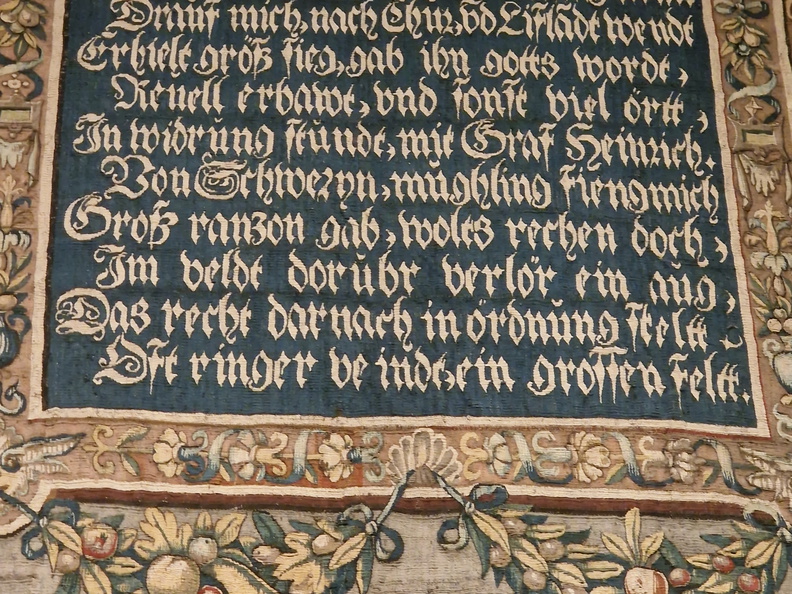 Drauf mich nach Chur, vd Liflādt wendt
Erhielt größ sieg, gab ihn gotts wordt,
Reuell erbawt, vnd sonst viel örtt,
In widrŭng stŭndt, mit Graf Heinrich.
Von Schweryn, mŭghling fiengmich
Groß ranzon gab, wolts rechen doch,
Im veldt dorŭbr verlör ein aŭg,
Das recht darnach in ördnŭng stelt
Oft ringer veindt, ein grossen feltt.